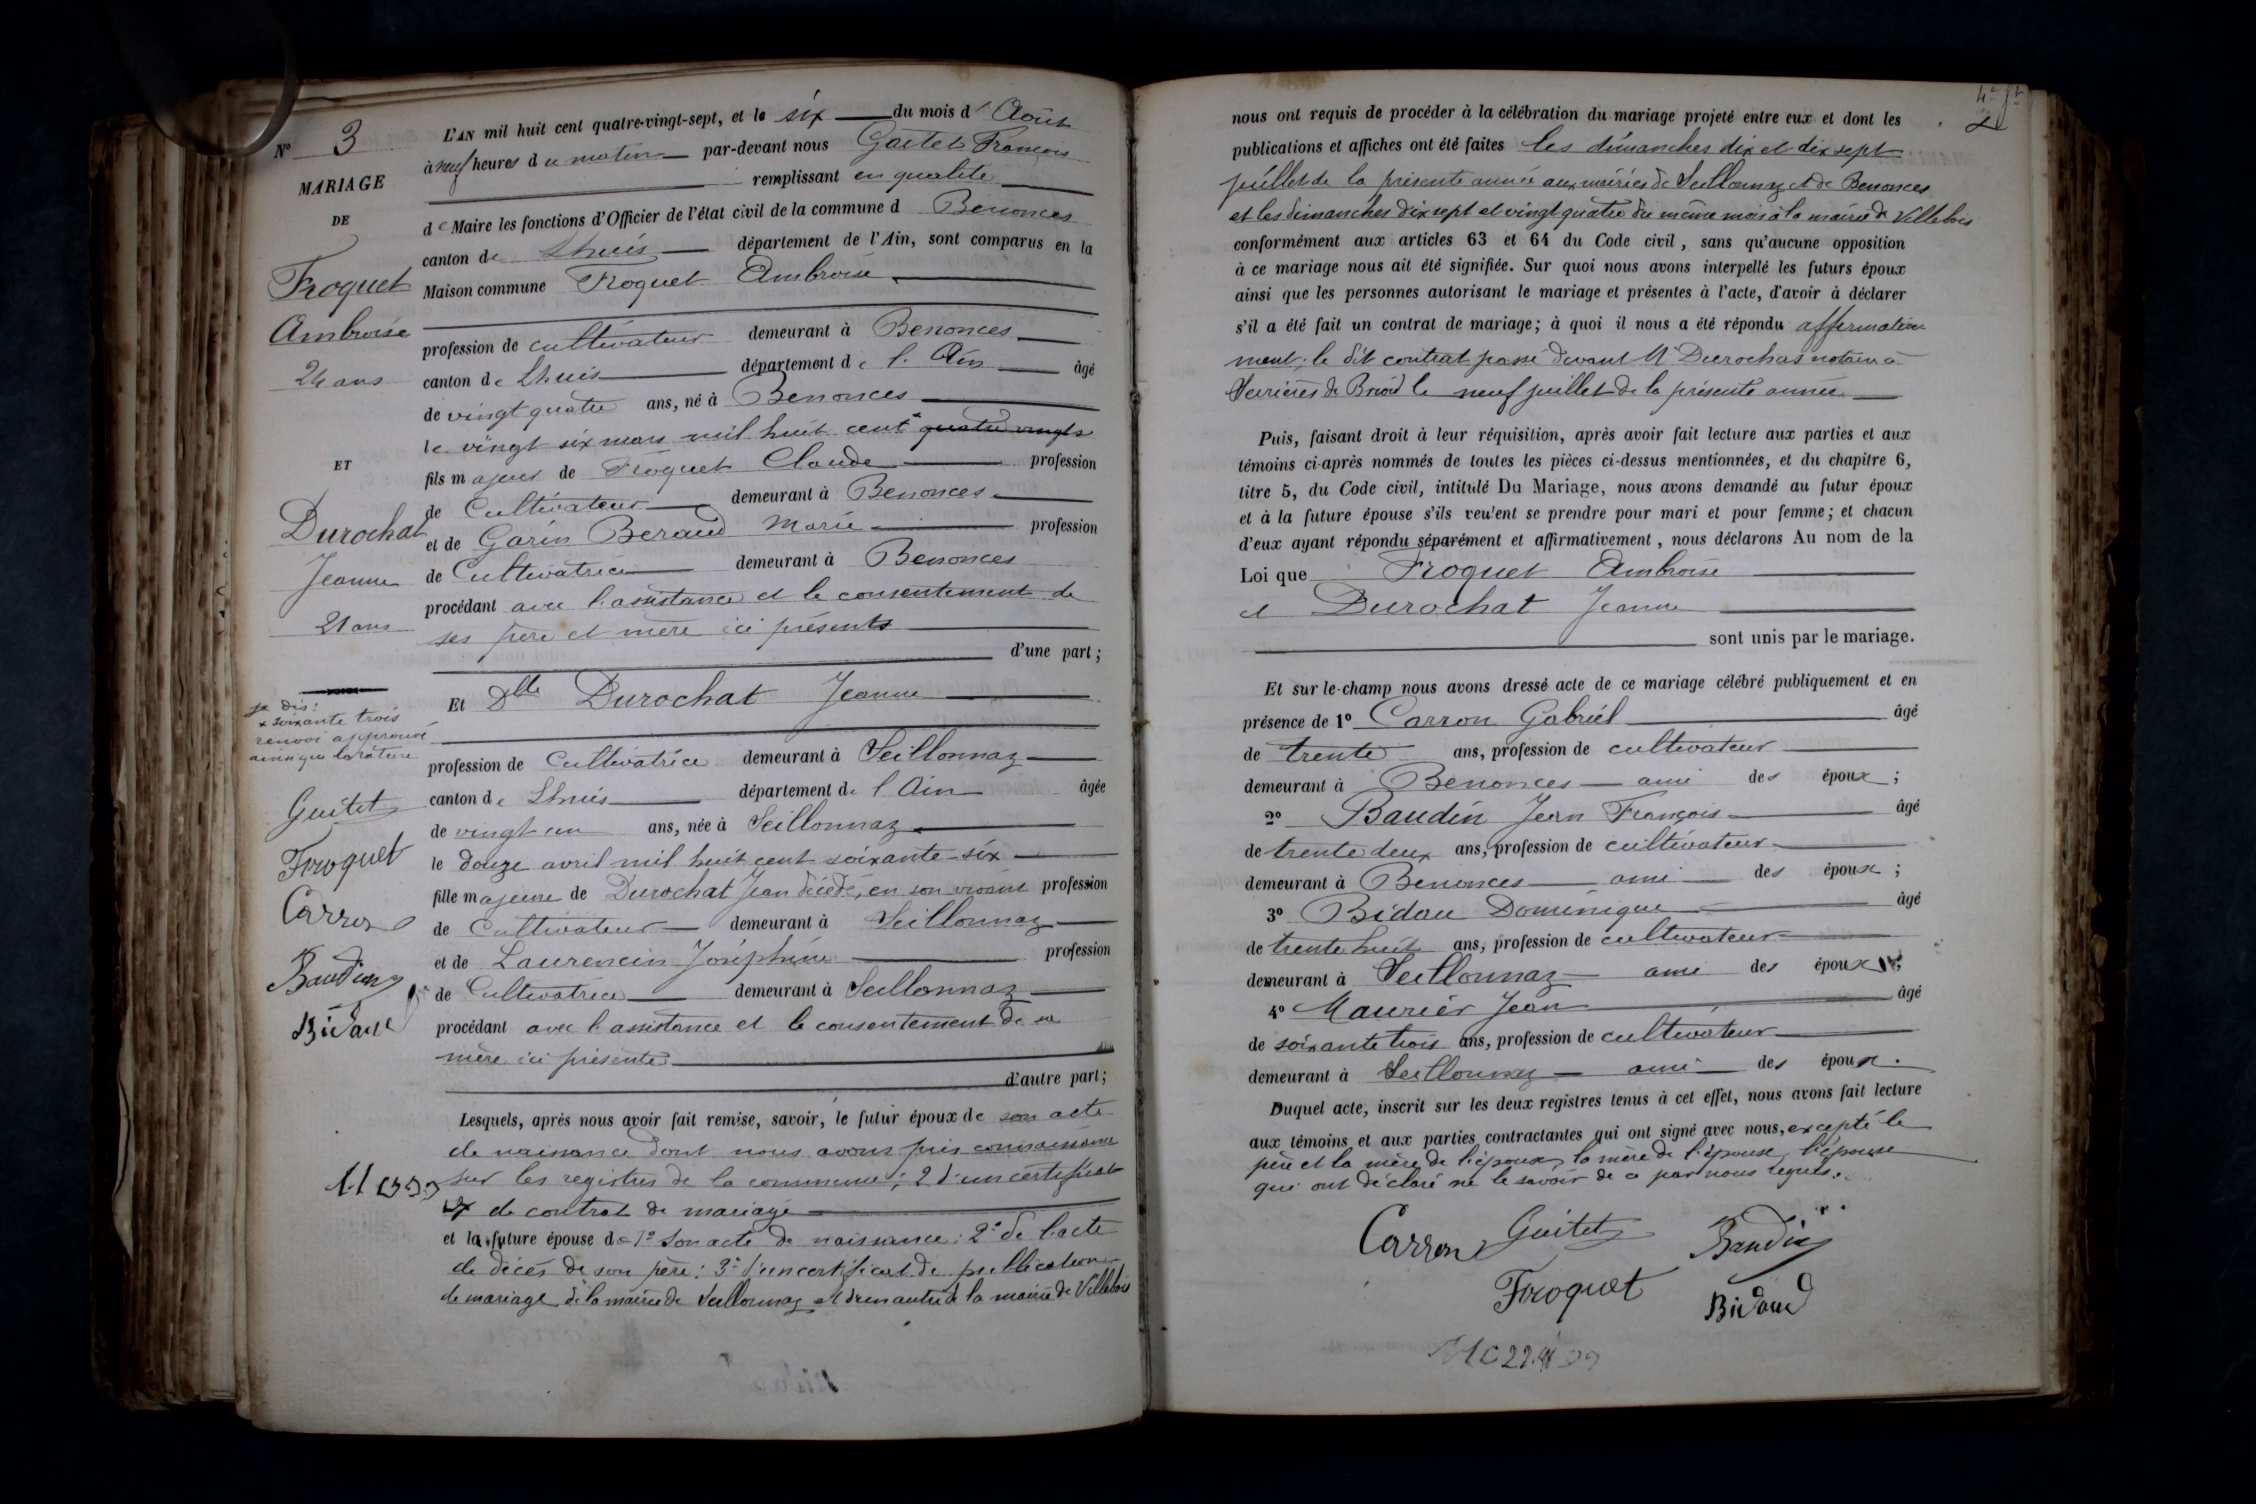 N° 3
MARIAGE
DE
Froquet
Ambroise
24 ans
ET
Durochat
Jeanne
21 ans
je dis:
x soixante trois
renvoi approuvé
ainsi que la rature
Guitet
Froquet
Carron
Baudin
Bidaud
L'AN mil huit cent quatre-vingt-sept, et le six du mois d'Août
à neuf heures du matin par-devant nous Guitet François
remplissant en qualité
de Maire les fonctions d'Officier de l'état civil de la commune d Benonces
canton de Lhuis département de l'Ain, sont comparus en la
Maison commune Froquet Ambroise
profession de cultivateur demeurant à Benonces
canton de Lhuis département de l'Ain âgé
de vingt quatre ans, né à Benonces
le vingt six mars mil huit cent x quatre vingts
fils majeur de Froquet Claude profession
de Cultivateur demeurant à Benonces
et de Garin Beraud Marie profession
de Cultivatrice demeurant à Benonces
procédant avec l'assistance et le consentement de
ses père et mère ici présents
d'une part;
Et Dlle Durochat Jeanne
profession de Cultivatrice demeurant à Seillonnaz
canton de Lhuis département de l'Ain âgée
de vingt un ans, née à Seillonnaz
le douze avril mil huit cent soixante-six
fille majeure de Durochat Jean décédé, en son vivant profession
de Cultivateur demeurant à Seillonnaz
et de Laurencin Joséphine profession
de Cultivatrice demeurant à Seillonnaz
procédant avec l'assistance et le consentement de sa
mère ici présente
d'autre part;
Lesquels, après nous avoir fait remise, savoir, le futur époux de son acte
de naissance dont nous avons pris connaissance
sur les registres de la commune; 2° d'un certificat
de contrat de mariage
et la future épouse de 1° son acte de naissance: 2° de l'acte
de décès de son père: 3° d'un certificat de publication
de mariage de la mairie de Seillonnaz et d'un autre de la mairie de Villebois
nous ont requis de procéder à la célébration du mariage projeté entre eux et dont les
publications et affiches ont été faites les dimanches dix et dix sept
juillet de la présente année aux mairies de Seillonnaz et de Benonces
et les dimanches dix sept et vingt quatre du même mois à la mairie de Villebois
conformément aux articles 63 et 64 du Code civil, sans qu'aucune opposition
à ce mariage nous ait été signifiée. Sur quoi nous avons interpellé les futurs époux
ainsi que les personnes autorisant le mariage et présentes à l'acte, d'avoir à déclarer
s'il a été fait un contrat de mariage; à quoi il nous a été répondu affirmative
ment; le dit contrat passé devant Me Durochas notaire à
Serrières de Briord le neuf juillet de la présente année
Puis, faisant droit à leur réquisition, après avoir fait lecture aux parties et aux
témoins ci-après nommés de toutes les pièces ci-dessus mentionnées, et du chapitre 6,
titre 5, du Code civil, intitulé Du Mariage, nous avons demandé au futur époux
et à la future épouse s'ils veulent se prendre pour mari et pour femme; et chacun
d'eux ayant répondu séparément et affirmativement, nous déclarons Au nom de la
Loi que Froquet Ambroise
et Durochat Jeanne
sont unis par le mariage.
Et sur-le-champ nous avons dressé acte de ce mariage célébré publiquement et en
présence de 1° Carron Gabriel âgé
de trente ans, profession de cultivateur
demeurant à Benonces ami des époux;
2° Baudin Jean François âgé
de trente deux ans, profession de cultivateur
demeurant à Benonces ami des époux;
3° Bidau Dominique âgé
de trente huit ans, profession de cultivateur
demeurant à Seillonnaz ami des époux;
4° Maurier Jean âgé
de soixante trois ans, profession de cultivateur
demeurant à Seillonnaz ami des époux.
Duquel acte, inscrit sur les deux registres tenus à cet effet, nous avons fait lecture
aux témoins et aux parties contractantes qui ont signé avec nous, excepté le
père et la mère de l'époux, la mère de l'épouse, l'épouse
qui ont déclaré ne le savoir de ce par nous requis.
Carron Guitet Baudin
Froquet Bidaud